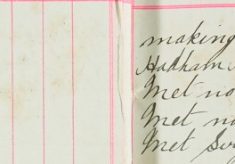 making
Hadham
Met no
Met no
Met